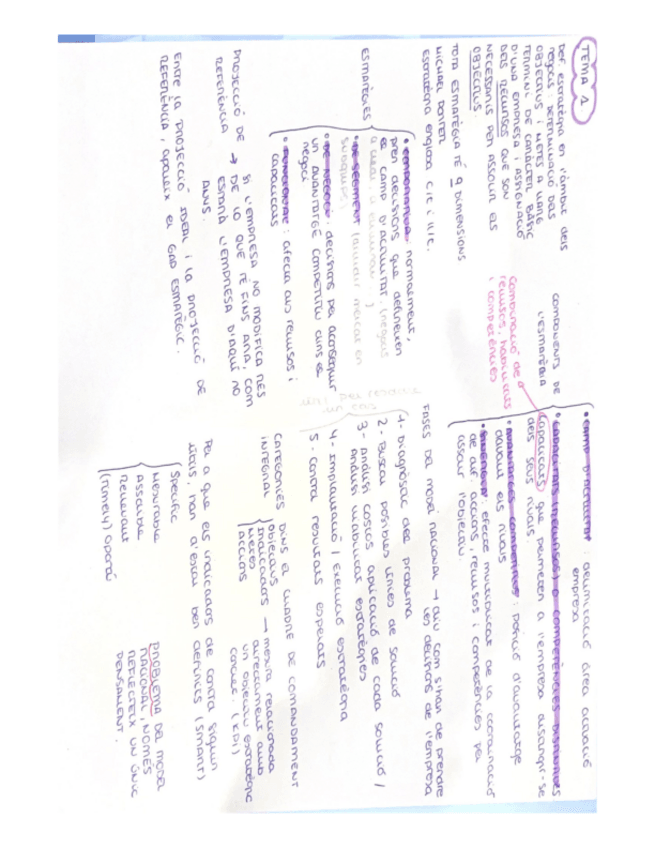 TEMA 1
Def estratègia en l'àmbit dels
negocis: determinació dels
objectius i metes a llarg
termini de caràcter bàsic
d'una empresa i assignació
dels recursos que són
necessaris per assolir els
objectius.
Tota estratègia té 2 dimensions
Michael Porter
Estratègia engloba c/c i ll/c.
ESTRATÈGIES
• Corporativa: normalment,
pren decisions que defineixen
el camp d'activitat. (negocis
a
• De segment (
• De negoci: decisions per aconseguir
un avantatge competitiu dins el
negoci
• Funcional: afecta als recursos i
capacitats
Projecció de referència → Si l'empresa no modifica res
de lo que fé fins ara, com
estarà l'empresa d'aquí no
anys.
Entre la projecció ideal i la projecció de
referència, apareix el gap estratègic.
components de
l'estratègia
• Camp d'activitat: delimitació àrea actuació
empresa
• Capacitats (recursos) o competències distintives
capacitats que permeten a l'empresa distingir-se
dels seus rivals.
• Avantatges competitius: posició d'avantatge
davant els rivals
• Sinergia: efecte multiplicat de la coordinació
de dif. accions, recursos i competències per
assolir l'objectiu.
Combinació de
recursos, habilitats
i competències
Fases del model racional → diu com s'han de prendre
les decisions de l'empresa
útil per resoldre
un cas
1- Diagnòstic del problema
2- Buscar posibles línies de solució
3- Anàlisi costos aplicació de cada solució /
Anàlisi viabilitat estratègies
4- Implantació / execució estratègia
5- Control resultats esperats
Categories dins el quadre de comandament
integral
objectius
indicadors → mesura relacionada
directament amb
un objectiu estratègic
concret. (KPI)
metes
accions
Per a que els indicadors de control siguin
útils, han d'estar ben definits (SMART)
Specific
Mesurable
Assolible
Rellevant
(Timely) Oportú
PROBLEMA del model
racional, només
reflecteix un únic
pensament.